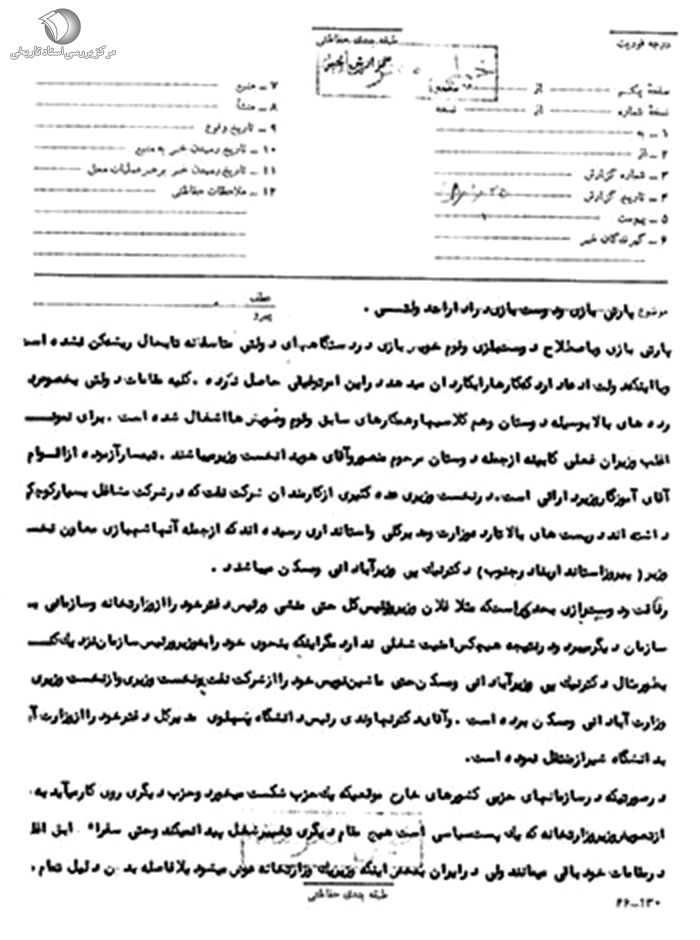 مرکز بررسی اسناد تاریخی
درجه فوریت
طبقه بندی حفاظتی
خیلی محرمانه
صفحه یکم از صفحه
نسخه شماره از نسخه
۱ – به
۲ – از
۳ – شماره گزارش
۴ – تاریخ گزارش
۵ – پیوست
۶ – گیرندگان خبر
۷ – منبع
۸ – منشأ
۹ – تاریخ وقوع
۱۰ – تاریخ رسیدن خبر به منبع
۱۱ – تاریخ رسیدن خبر برهبر عملیات محل
۱۲ – ملاحظات حفاظتی
موضوع پارتی بازی و دوست بازی در ادارات دولتی .
عطف
پیرو
پارتی بازی وباصطلاح دوستبازی وقوم خویش بازی دردستگاههای دولتی متاسفانه تابحال ریشه‌کن نشده است
وبااینکه دولت ادعا دارد که کارها را بکاردان میدهد دراین امر توفیقی حاصل نکرده . کلیه مقامات دولتی بخصوص در
رده های بالا بوسیله دوستان وهم کلاسیها وهمکارهای سابق وقوم وخویشها اشغال شده است . برای نمونه
اغلب وزیران فعلی کابینه ازجمله دوستان مرحوم منصور وآقای هویدا نخست وزیر میباشند . تیمسار آزموده ازاقوام
آقای آموزگار وزیر دارائی است . در نخست وزیری عده کثیری ازکارمندان شرکت نفت که در شرکت مشاغل بسیار کوچکی
داشته اند در پست های بالا تا رده وزارت ومدیرکلی واستانداری رسیده اند که ازجمله آنها شهبازی معاون نخست
وزیر ( پیروز استاندار بنادر جنوب ) دکتر نیک پی وزیر آبادانی ومسکن میباشند .
رفاقت ودوست‌بازی بحدی است‌که مثلا فلان وزیر ورئیس کل حتی منشی ورئیس دفتر خود را از وزارتخانه وسازمانی به
سازمان دیگر میبرد ودرنتیجه هیچکس امنیت شغلی ندارد مگر اینکه بنحوی خود را به وزیر ورئیس سازمان نزدیک کند
بطور مثال دکتر نیک پی وزیر آبادانی ومسکن حتی ماشین‌نویس خود را از شرکت نفت به نخست وزیری واز نخست وزیری به
وزارت آبادانی ومسکن برده است . وآقای دکتر نهاوندی رئیس دانشگاه پهلوی مدیرکل دفتر خود را از وزارت آبادانی
بدانشگاه شیراز منتقل نموده است .
درصورتیکه در سازمانهای حزبی کشورهای خارج موقعیکه یک حزب شکست میخورد وحزب دیگری روی کار میآید به
از تعویض وزیر وزارتخانه که یک پست سیاسی است هیچ مقام دیگری تغییر شغل پیدا نمیکند وحتی سفرا
در مقامات خود باقی میمانند ولی در ایران بمحض اینکه وزیر یک وزارتخانه عوض میشود بلافاصله بدون دلیل تمام .
طبقه بندی حفاظتی
۲۶–۱۳۰